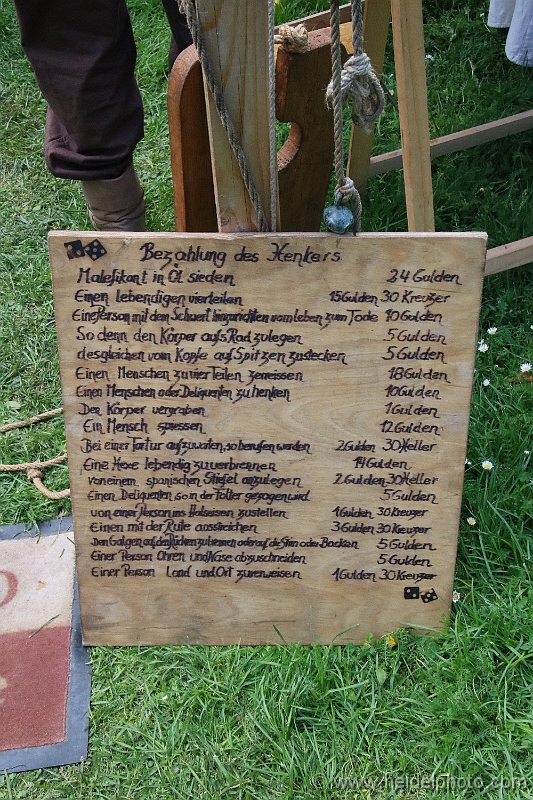 Bezahlung des Henkers
Malefikant in Öl sieden 24 Gulden
Einen lebendigen vierteilen 15 Gulden 30 Kreuzer
Eine Person mit dem Schwert hinzurichten vom leben zum Tode 10 Gulden
So denn den Körper aufs Rad zulegen 5 Gulden
desgleichen vom Kopfe auf Spitzen zustecken 5 Gulden
Einen Menschen zu vier Teilen zerreissen 18 Gulden
Einen Menschen oder Deliquenten zu henken 10 Gulden
Den Körper vergraben 1 Gulden
Ein Mensch spiessen 12 Gulden
Bei einer Tortur aufzuwarten, so berufen werden 2 Gulden 30 Heller
Eine Hexe lebendig zu verbrennen 14 Gulden
Von einem spanischen Stiefel anzulegen 2 Gulden 30 Heller
Einen Deliquenten, so in der Folter gezogen wird 5 Gulden
von einer Person ins Halseisen zu stellen 1 Gulden 30 Kreuzer
Einen mit der Rute ausstreichen 3 Gulden 30 Kreuzer
Den Galgen auf den Rücken zu brennen oder auf die Stirn oder Backen 5 Gulden
Einer Person Ohren und Nase abzuschneiden 5 Gulden
Einer Person Land und Ort zu verweisen 1 Gulden 30 Kreuzer
www.heidelphoto.com